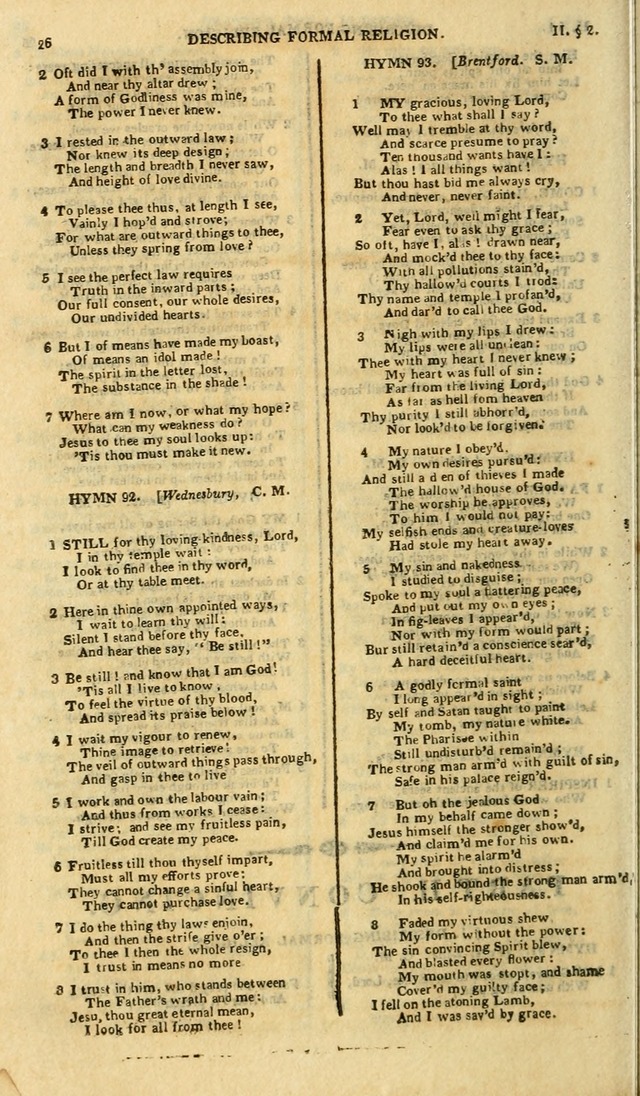 26
DESCRIBING FORMAL RELIGION.
II. § 2.
2 Oft did I with th' assembly join,
And near thy altar drew ;
A form of Godliness was mine,
The power I never knew.
3 I rested in the outward law ;
Nor knew its deep design ;
The length and breadth I never saw,
And height of love divine.
4 To please thee thus, at length I see,
Vainly I hop'd and strove;
For what are outward things to thee,
Unless they spring from love ?
5 I see the perfect law requires
Truth in the inward parts ;
Our full consent, our whole desires,
Our undivided hearts.
6 But I of means have made my boast,
Of means an idol made !
The spirit in the letter lost,
The substance in the shade !
7 Where am I now, or what my hope ?
What can my weakness do ?
Jesus to thee my soul looks up:
'Tis thou must make it new.
HYMN 92. [Wednesbury, C. M.
1 STILL for thy loving-kindness, Lord,
I in thy temple wait :
I look to find thee in thy word,
Or at thy table meet.
2 Here in thine own appointed ways,
I wait to learn thy will:
Silent I stand before thy face,
And hear thee say, "Be still !"
3 Be still ! and know that I am God!
'Tis all I live to know ,
To feel the virtue of thy blood,
And spread its praise below !
4 I wait my vigour to renew,
Thine image to retrieve !
The veil of outward things pass through,
And gasp in thee to live
5 I work and own the labour vain ;
And thus from works I cease:
I strive; and see my fruitless pain,
Till God create my peace.
6 Fruitless till thou thyself impart,
Must all my efforts prove:
They cannot change a sinful heart,
They cannot purchase love.
7 I do the thing thy laws enjoin,
And then the strife give o'er ;
To thee I then the whole resign,
I trust in means no more
8 I trust in him, who stands between
The Father's wrath and me:
Jesu, thou great eternal mean,
I look for all from thee !
HYMN 93. [Brentford. S. M.
1 MY gracious, loving Lord,
To thee what shall I say ?
Well may I tremble at thy word,
And scarce presume to pray ?
Ten thousand wants have I :
Alas ! I all things want !
But thou hast bid me always cry,
And never, never faint.
2 Yet, Lord, well might I fear,
Fear even to ask thy grace ;
So oft, have I, alas ! drawn near,
And mock'd thee to thy face:
With all pollutions stain'd,
Thy hallow'd courts I trod:
Thy name and temple I profan'd,
And dar'd to call thee God.
3 Nigh with my lips I drew :
My lips were all unclean:
Thee with my heart I never knew ;
My heart was full of sin :
Far from the living Lord,
As far as hell fom heaven
Thy purity I still abhorr'd,
Nor look'd to be forgiven.
4 My nature I obey'd,
My own desires pursu'd:
And still a den of thieves I made
The hallow'd house of God.
The worship he approves,
To him I would not pay:
My selfish ends and creature-loves
Had stole my heart away.
5 My sin and nakedness
I studied to disguise ;
Spoke to my soul a flattering peace,
And put out my own eyes ;
In fig-leaves I appear'd,
Nor with my form would part ;
But still retain'd a conscience sear'd,
A hard deceitful heart.
6 A godly formal saint
I long appear'd in sight ;
By self and Satan taught to paint
My tomb, my nature white.
The Pharisee within
Still undisturb'd remain'd ;
The strong man arm'd with guilt of sin,
Safe in his palace reign'd.
7 But oh the jealous God
In my behalf came down ;
Jesus himself the stronger show'd,
And claim'd me for his own.
My spirit he alarm'd
And brought into distress ;
He shook and bound the strong man arm'd,
In his self-righteousness.
8 Faded my virtuous shew
My form without the power:
The sin convincing Spirit blew,
And blasted every flower :
My mouth was stopt, and shame
Cover'd my guilty face ;
I fell on the atoning Lamb,
And I was sav'd by grace.